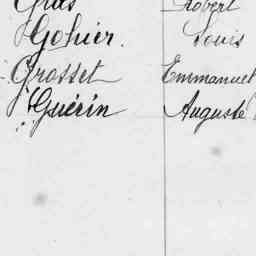 Robert
Gohier. Louis
Grosset Emmanuel
Guérin Auguste